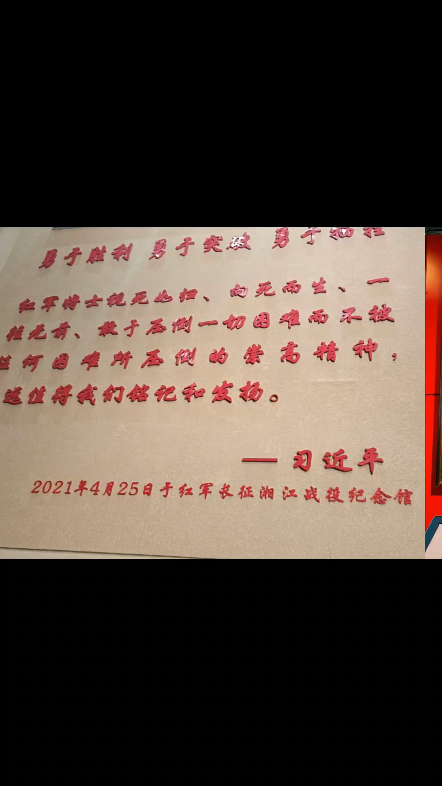 勇于胜利 勇于突破 勇于牺牲
红军将士视死如归、向死而生、一
往无前、敢于压倒一切困难而不被
任何困难所压倒的崇高精神，
远值得我们铭记和发扬。
—— 习近平
2021年4月25日于红军长征湘江战役纪念馆